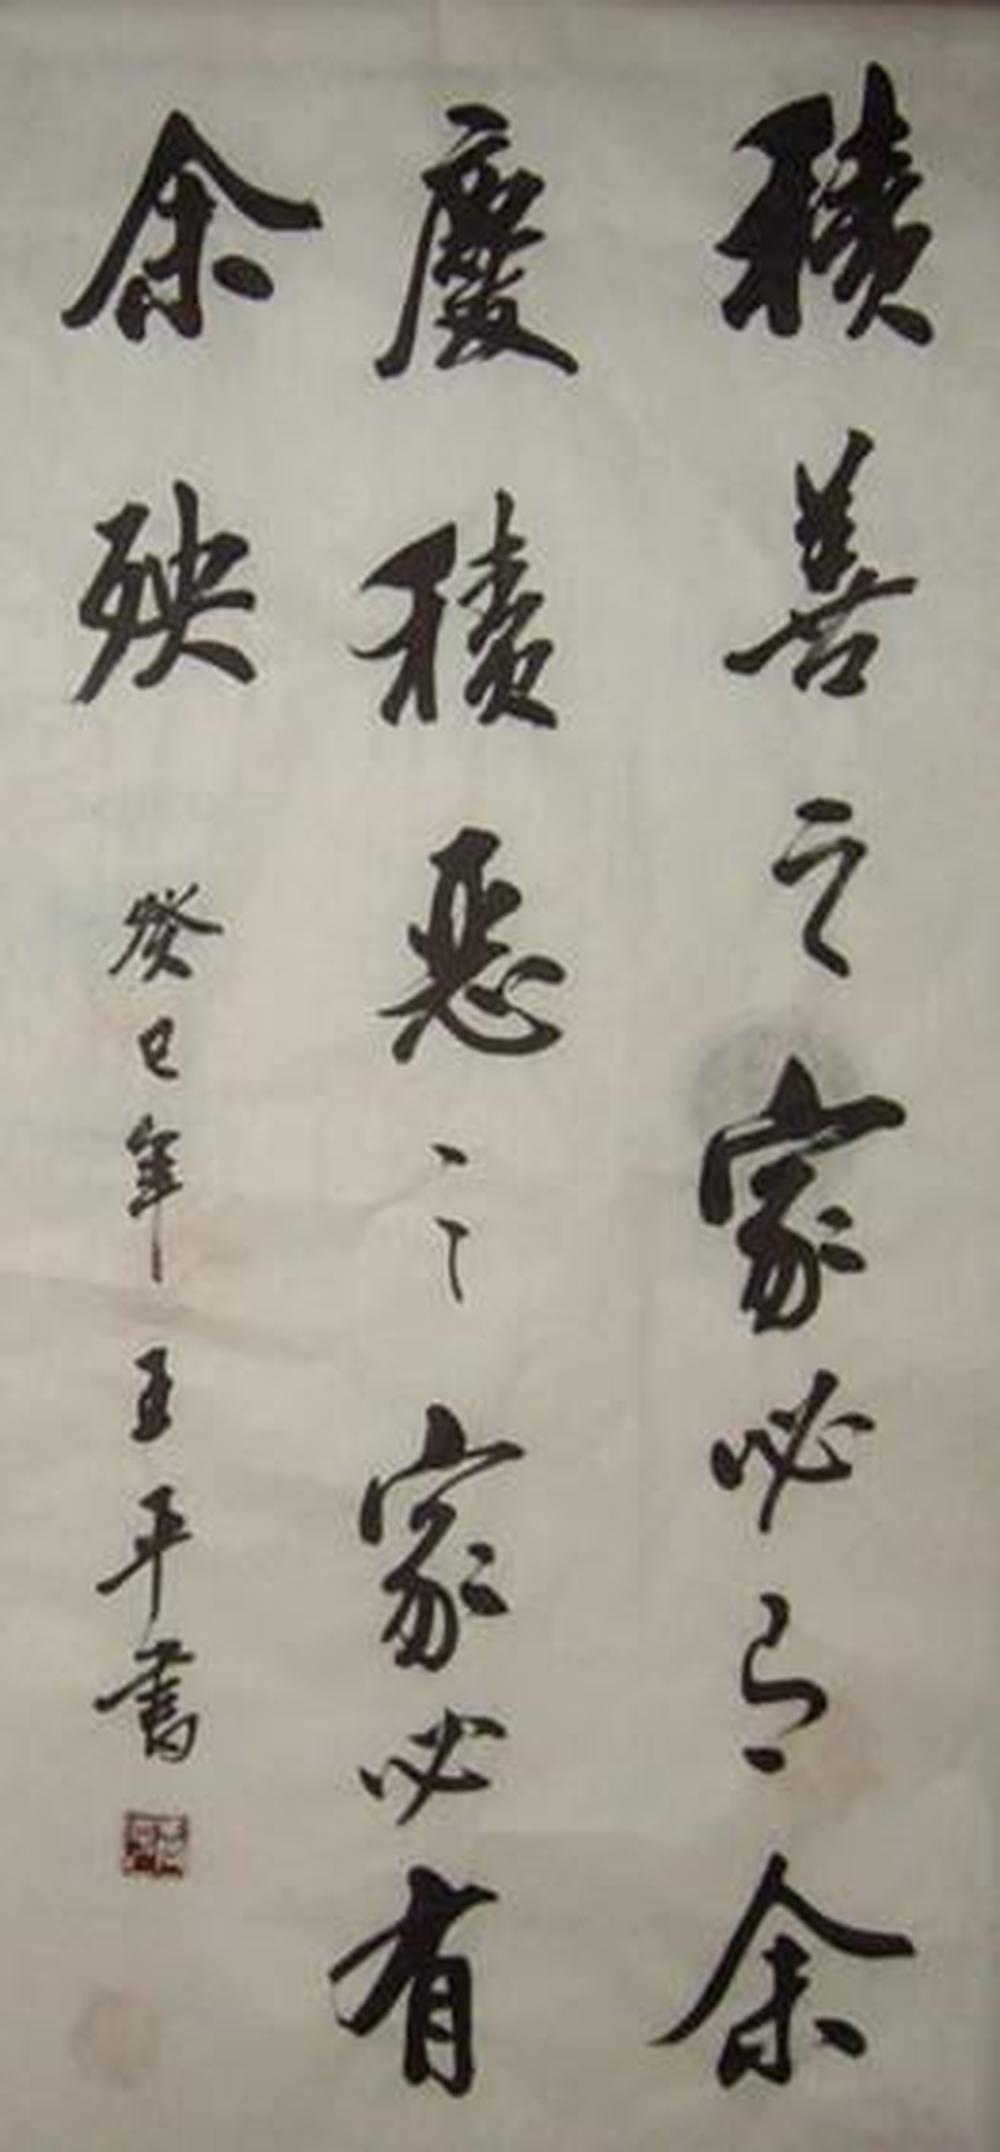 積善之家必有余
慶積惡之家必有
余殃
癸巳年王平書